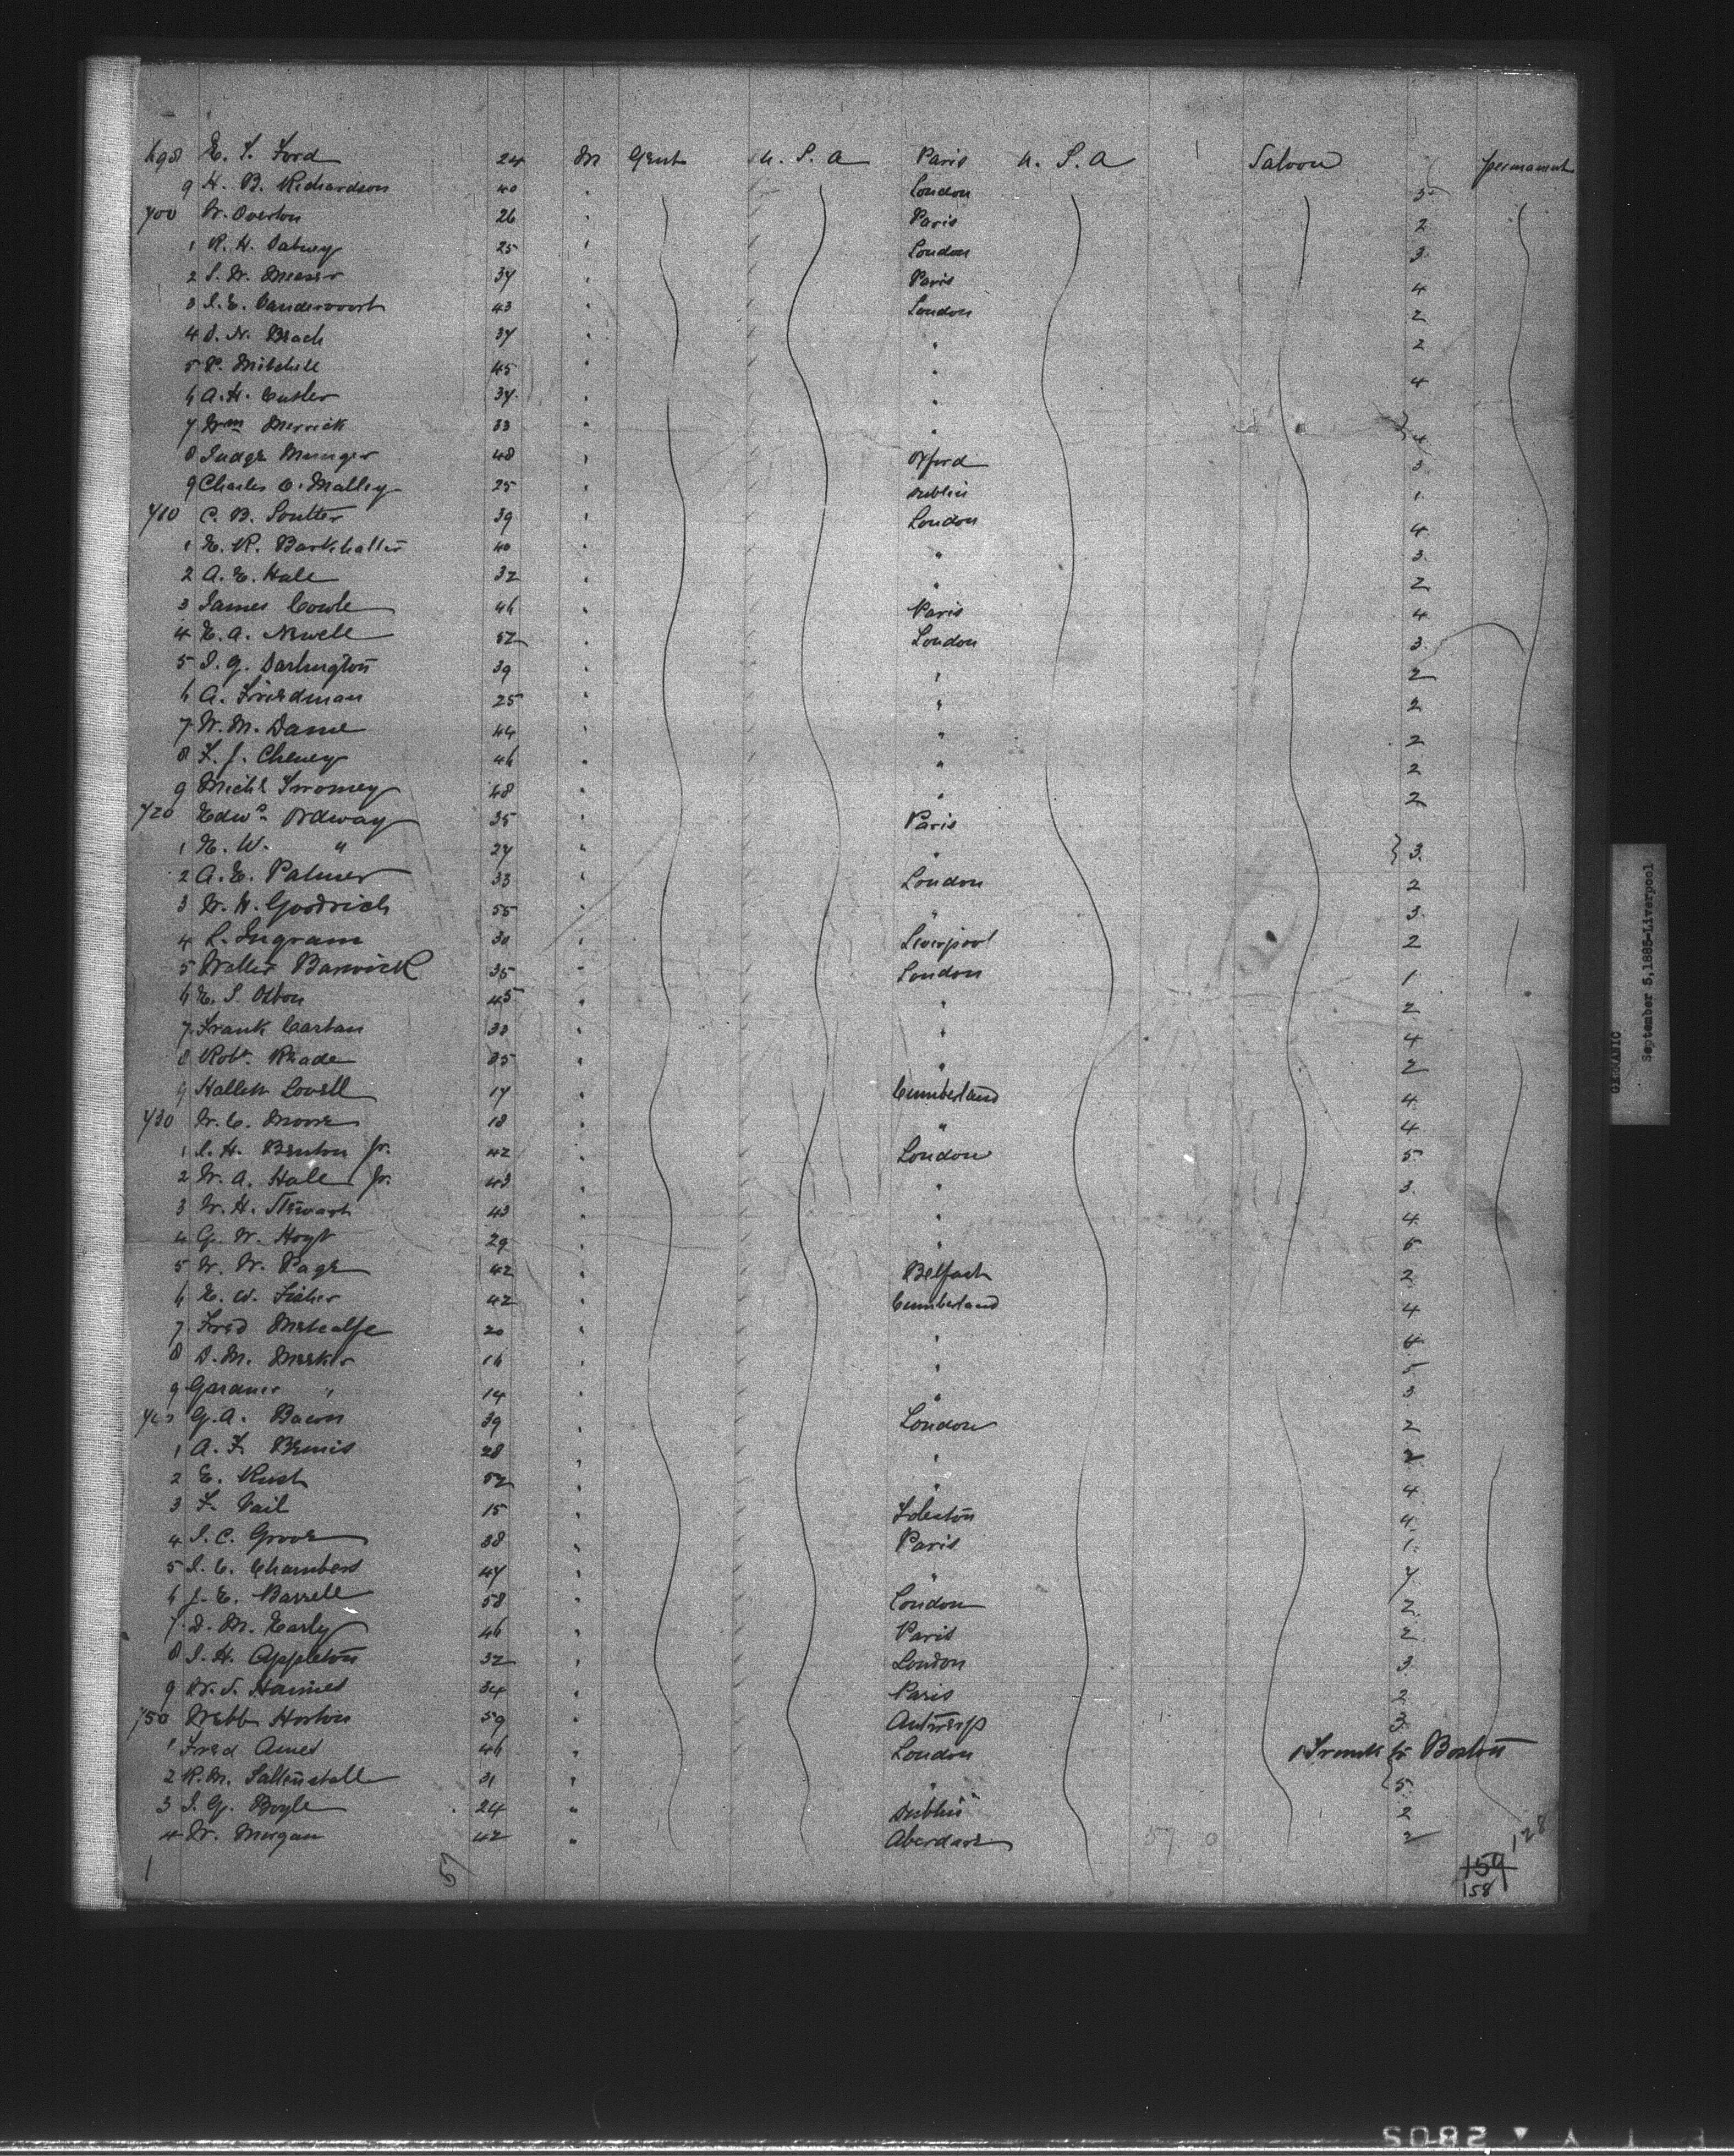 698 E. S. Ford 24 M Gent U. S. A Paris U. S. A Saloon permanent
9 H. B. Richardson 40 " London 3
700 W. Overton 26 " Paris 2
1 R. H. Dabney 25 " London 3
2 S. W. 37 " Paris 4
3 J. E. Vandervoort 43 " London 2
4 N. Beach 37 " " 2
5 P. Mitchell 45 " " 4
6 A. H. Cutler 37 " "
7 Wm Merrick 33 " " } 4
8 Judge Munger 48 " Oxford 3
9 Charles O. Malley 25 " Dublin 1
710 C. B. Soutter 39 " London 4
1 E. R. 40 " " 3
2 A. E. Hale 32 " " 2
3 James Cowle 46 " Paris 4
4 E. A. Newell 52 " London 3
5 J. G. Darlington 39 " " 2
6 A. Friedman 25 " " 2
7 W. M. Dame 44 " " 2
8 F. J. Cheney 46 " " 2
9 Michl Twomey 48 " " 2
720 Edwd Ordway 35 " Paris
1 E. W. " 27 " " } 3
2 A. E. Palmer 33 " London 2
3 W. H. Goodrich 55 " " 3
4 Ingram 30 " Liverpool 2
5 Walter Barwick 35 " London 1
6 E. S. Osbon 45 " " 2
7 Frank 38 " " 4
8 Robt Reade 35 " " 2
9 Lovell 17 " Cumberland 4
730 W. C. Moore 18 " " 4
1 J. H. Benton Jr. 42 " London 5
2 W. A. Hale Jr. 43 " " 3
3 W. H. Stewart 43 " " 4
4 G. W. Hoyt 29 " " 5
5 W. W. Page 42 " Belfast 2
6 E. W. Fisher 42 " Cumberland 4
7 Fred Metcalfe 20 " " 4
8 D. M. 16 " " 5
9 Gardner " 14 " " 3
740 G. A. Bacon 39 " London 2
1 A. F. Bemis 28 " " 2
2 E. Rush 52 " " 4
3 F. Vail 15 " 4
4 J. C. Groome 38 " Paris 1
5 J. C. Chambers 47 " " 7
6 J. E. Barrell 58 " London 2
7 D. M. Early 46 " Paris 2
8 J. H. Appleton 32 " London 3
9 W. J. Haines 34 " Paris 2
750 Webb Horton 59 " Antwerp 3
1 Fred Ames 46 " London 1 Trunk to Boston
2 R. M. Saltenstall 31 " " { 5
3 J. G. Boyle 24 " Dublin 2
4 W. Morgan 42 " Aberdare 2
1 57 57 0 128
159
158
GERMANIC
September 5,1885-Liverpool